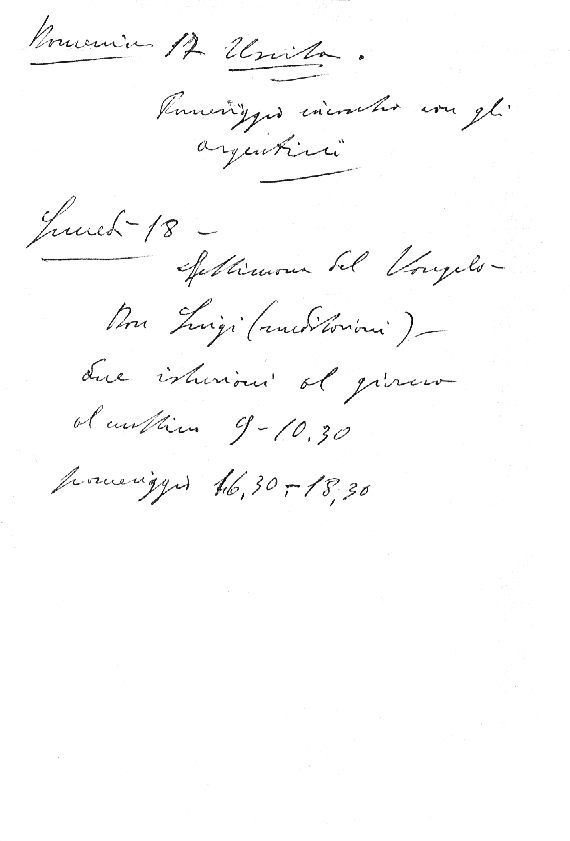 Domenica 17 Uscita.
Pomeriggio incontro con gli
argentini
Lunedì 18 -
Settimana del Vangelo -
Don Luigi (meditazioni) -
due istruzioni al giorno
al mattino 9-10.30
pomeriggio 16,30-18,30